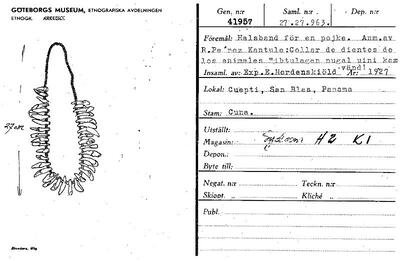 GÖTEBORGS MUSEUM, ETNOGRAFISKA AVDELNINGEN
ETNOGR.
37 cm
Gen. n:r
41957
Saml. n:r
27.27.963.
Dep. n:r
Föremål: Halsband för en pojke. Anm.av
R.Pe'rez Kantule:Collar de dientes de
los animales "ibtulagen nugal uini kam
vänd!
Insaml. av: Exp.E.Nordenskiöld År: 1927
Lokal: Cuepti, San Blas, Panama
Stam: Cuna.
Utställt:
Magasin: H2 K1
Depon.:
Byte till:
Negat. n:r
Teckn. n:r
Skiopt.
Kliché
Publ.